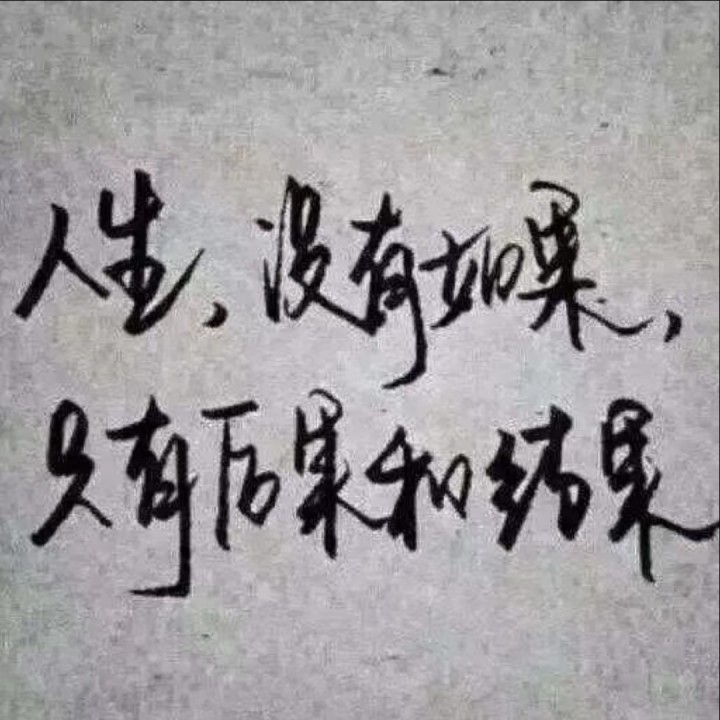 人生,没有如果,
只有后果和结果